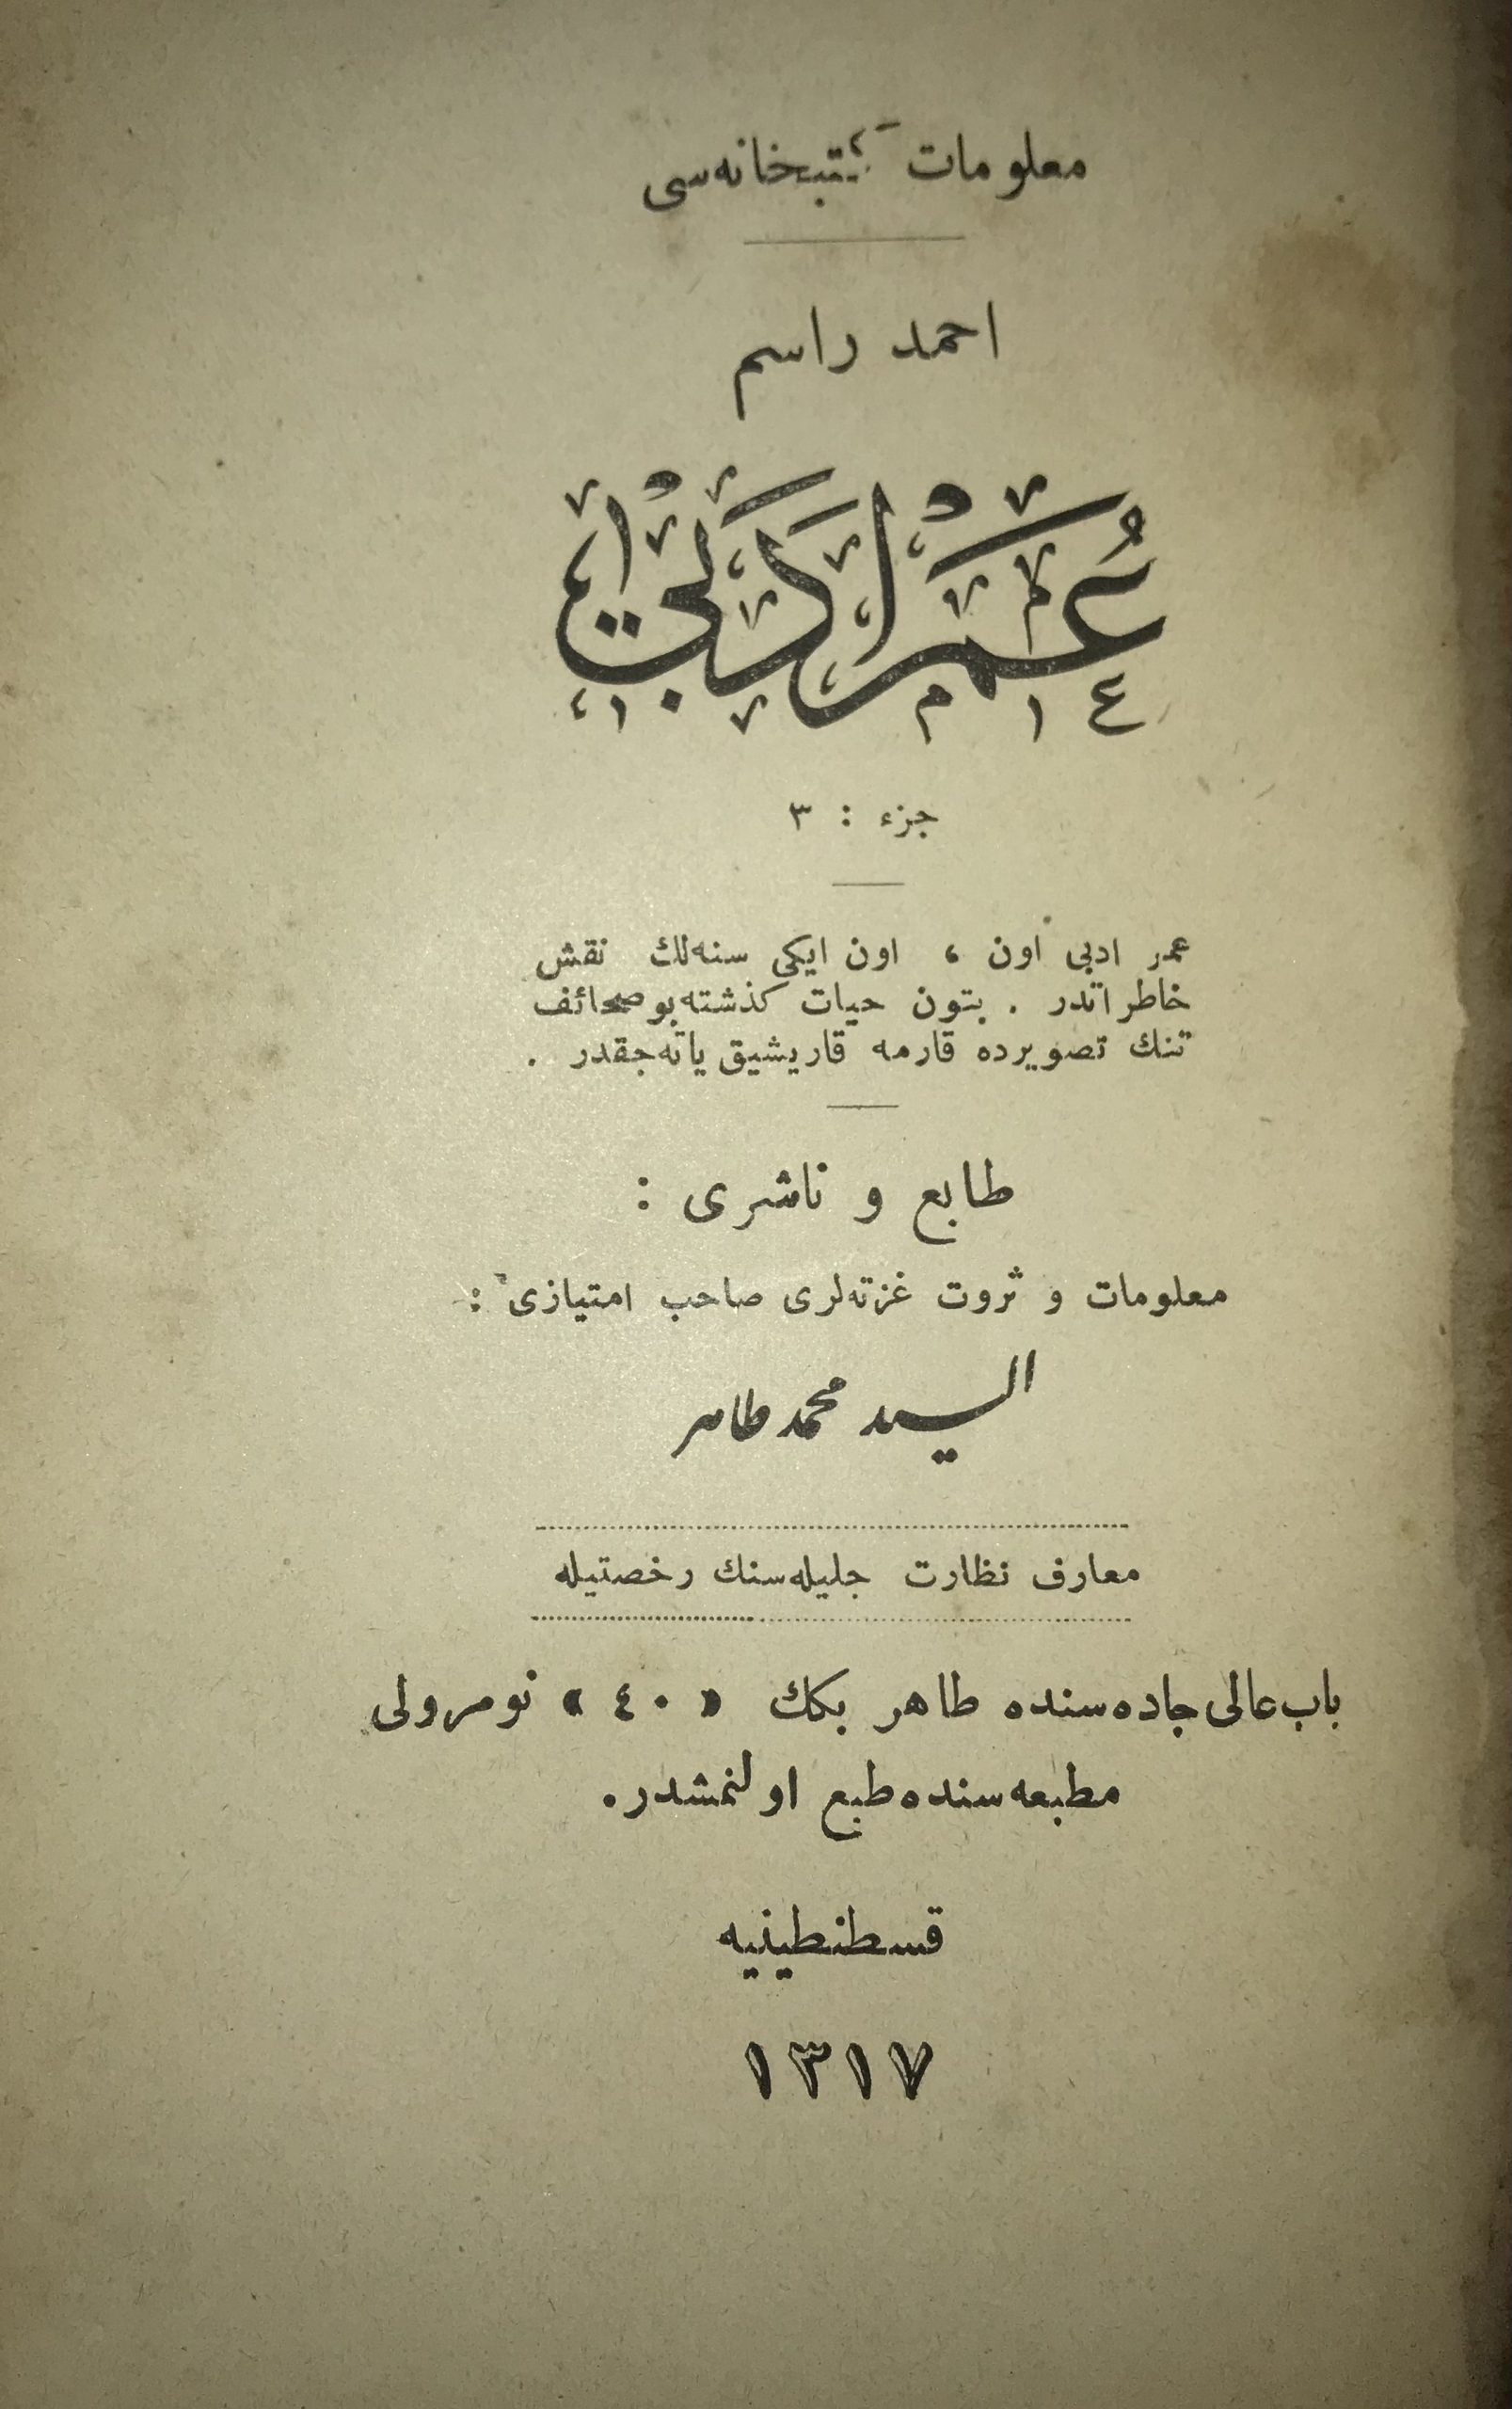 معلومات كتبخانه‌سی
احمد راسم
عُمر ادبی
جزء : ٣
عمر ادبی اون ، اون ایکی سنه‌لك نقش
خاطراتدر . بتون حیات کذشته بو صحائف
تنك تصویرده قارمه قاریشیق یاته‌جقدر .
طابع و ناشری :
معلومات و ثروت غزته‌لری صاحب امتیازی :
السید محمد طاهر
معارف نظارت جلیله‌سنك رخصتیله
باب عالی جاده‌سنده طاهر بکك « ٤٠ » نومرولی
مطبعه‌سنده طبع اولنمشدر .
قسطنطینیه
١٣١٧